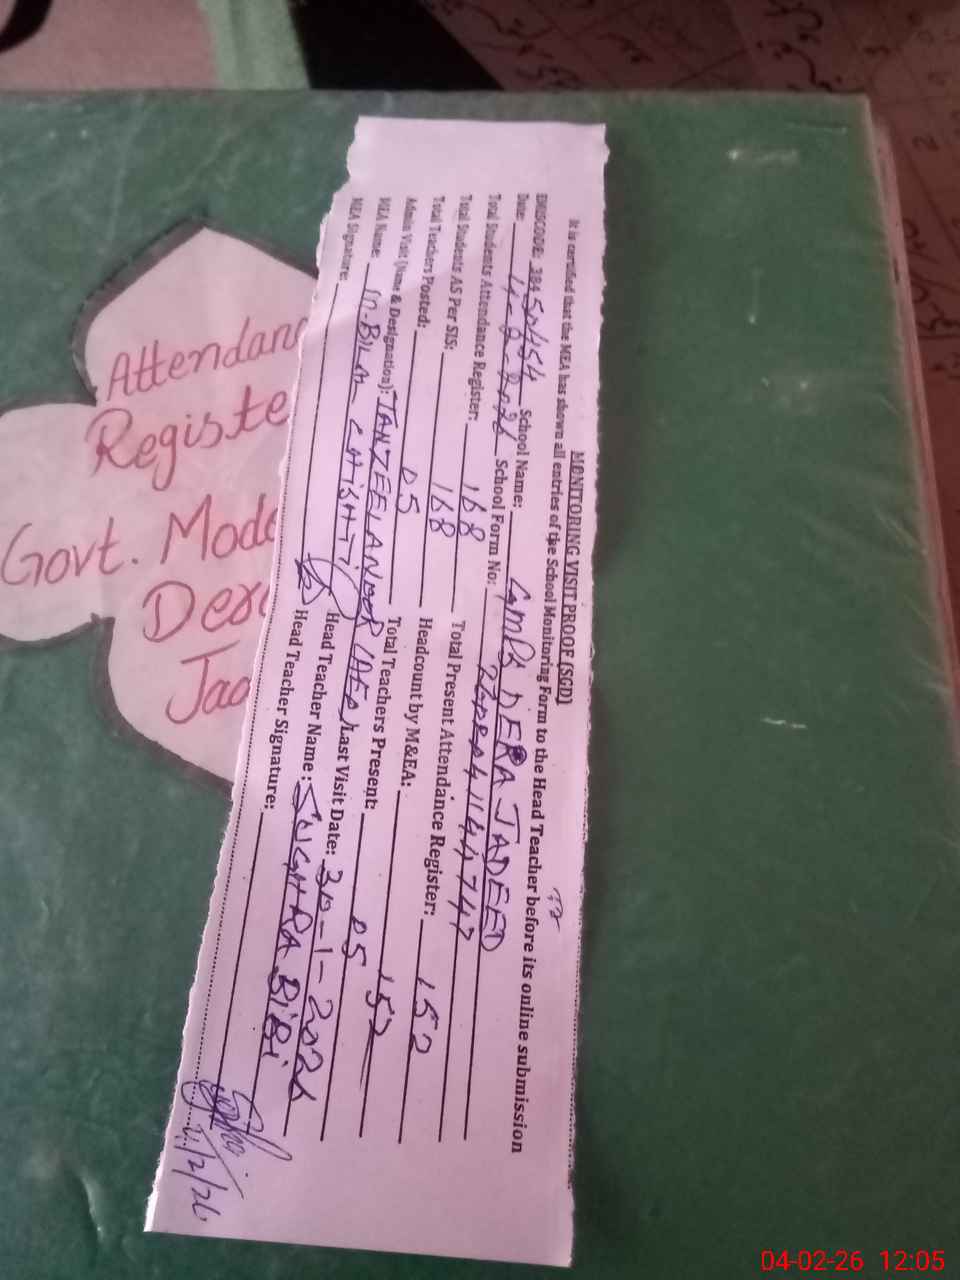 MONITORING VISIT PROOF (SGD)
It is certified that the MEA has shown all entries of the School Monitoring Form to the Head Teacher before its online submission
EMISCODE: School Name: GMPS DERA JADEED
Date: 4-2-2026 School Form No:
Total Students Attendance Register: 168 Total Present Attendance Register: 152
Total Students AS Per SIS: 168 Headcount by M&EA: 152
Total Teachers Posted: 05 Total Teachers Present: 05
Admin Visit (Name & Designation): TANZEELANOOR (AEO) Last Visit Date: 30-1-2026
MEA Name: M-BILAL CHISHTI Head Teacher Name: SUGHRA BiBi
MEA Signature: Head Teacher Signature:
4/2/26
Attendan
Registe
Govt. Mode
Dera
Jad
04-02-26 12:05